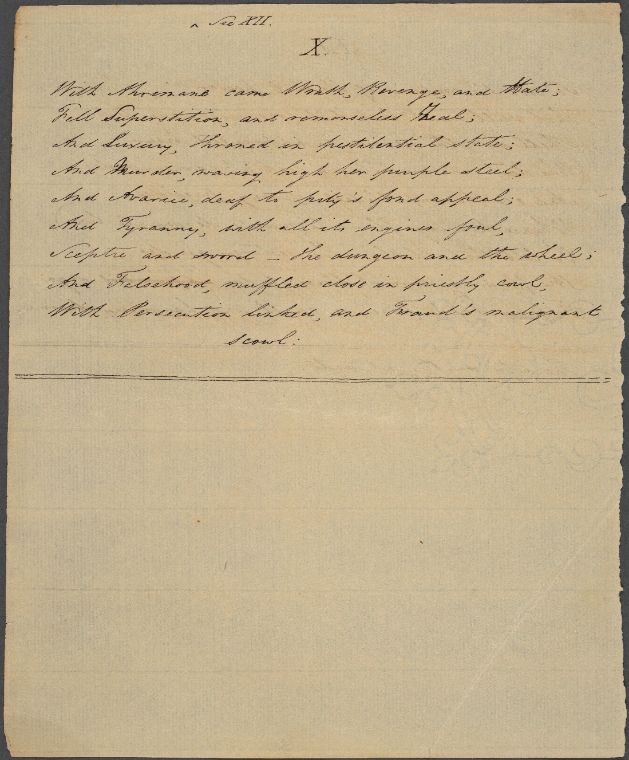 ^ See XII.
X.
With Ahrimane came Wrath, Revenge, and Hate;
Fell Superstition, and remorseless Zeal;
And Luxury, throned in pestilential state;
And Murder, waving high her purple steel;
And Avarice, deaf to pity's fond appeal;
And Tyranny, with all its engines foul,
Sceptre and sword – the dungeon and the wheel;
And Falsehood, muffled close in priestly cowl,
With Persecution linked, and Fraud's malignant
scowl: